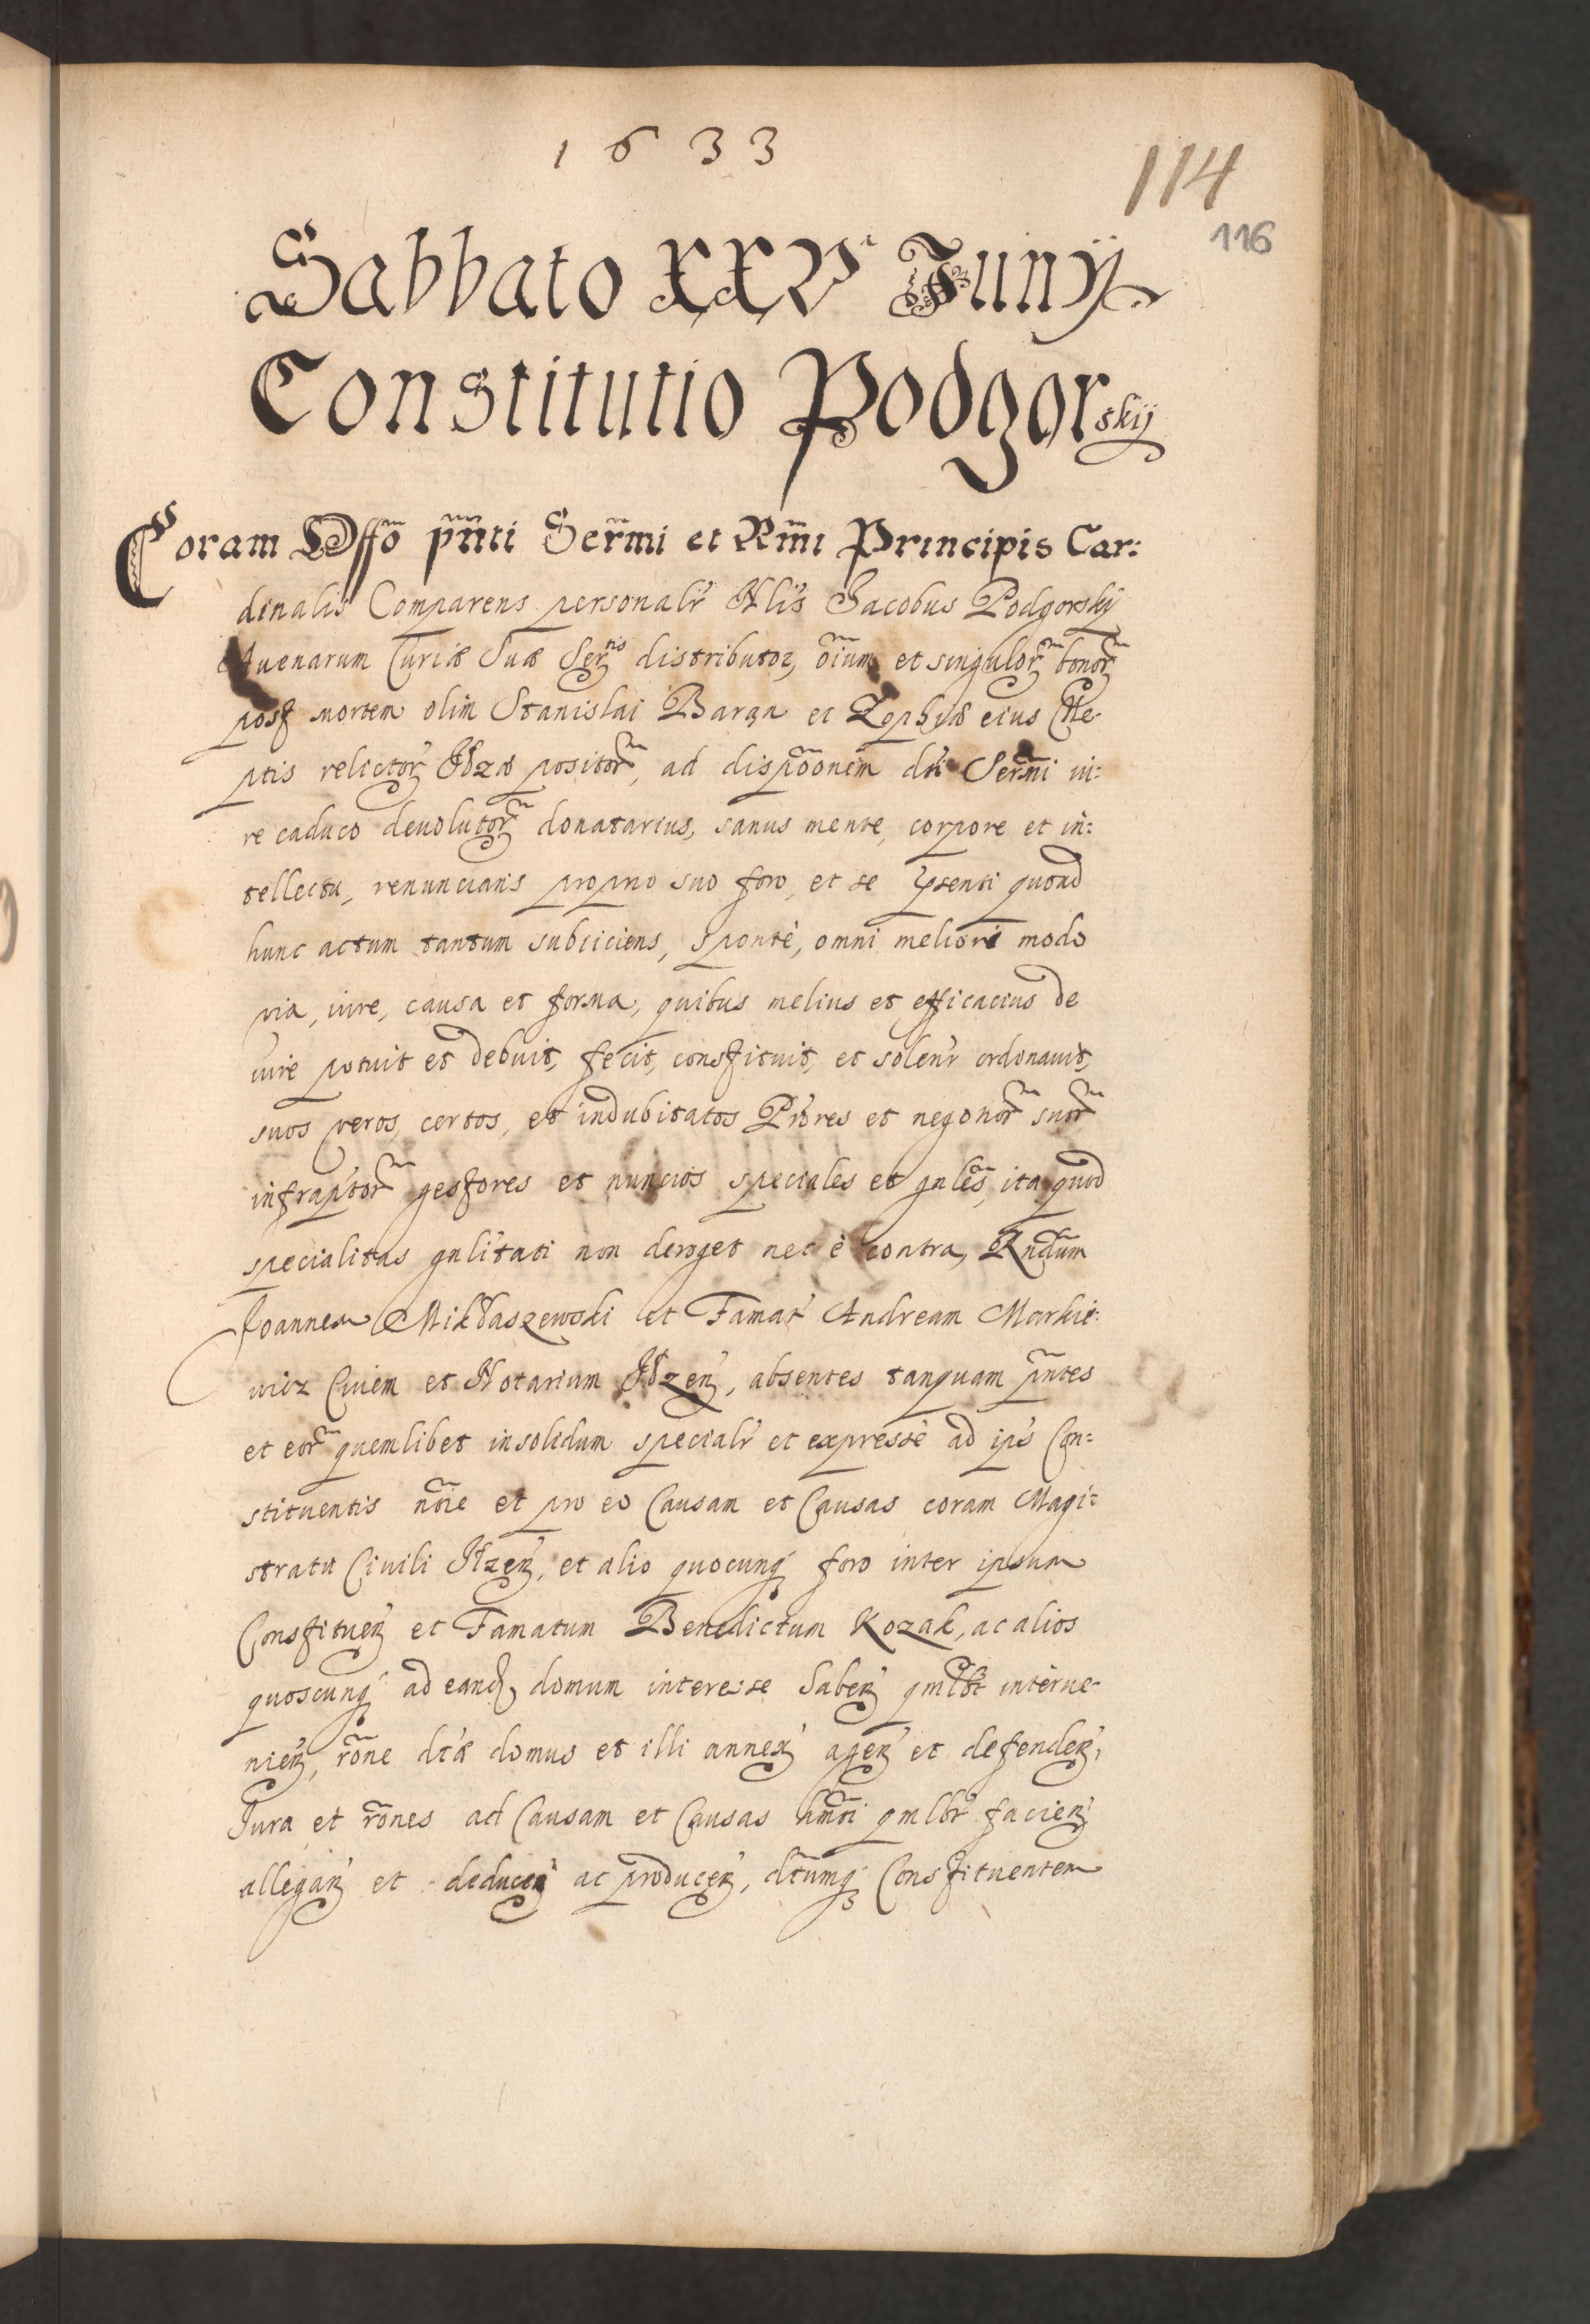 1633
114
116
Sabbato XXV Junÿ
Constitutio Podgorskÿ
Coram Offō pñti Serm̃i et Rm̃i Principis Car:
dinalis Comparens personalr̃ Nlis Jacobus Podgorskÿ
Auenarum Curiæ Suæ Sertis distributor, õium et singulor̃ bonor̃
post mortem olim Stanislai Barza et Zophiæ eius Ne-
ptis relictor̃ Iłzæ positor̃, ad dispõonem dti Serm̃i iu:
re caduco deuolutor̃ donatarius, sanus mente, corpore et in:
tellectu, renuncians proprio suo foro, et se psenti quoad
hunc actum tantum subiiciens, sponte, omni meliori modo
via, iure, causa et forma, quibus melius et efficacius de
iure potuit et debuit, fecit, constituit, et solenr̃ ordonauit,
suos veros, certos, et indubitatos Prõres et negonor̃ suor̃
infraptor̃ gestores et nuncios speciales et gnles, ita quod
specialitas gnlitati non deroget nec è contra, Rndum
Joannem Mikłaszewski et Famat̃ Andream Markie:
wicz Ciuem et Notarium Iłzen̄, absentes tanquam p̃ntes
et eor̃ quemlibet insolidum specialr̃ et expressè ad ips̃ Con:
stituentis nõie et pro eo Causam et Causas coram Magi:
stratu Ciuili Ilzen̄, et alio quocunq́ foro inter ipsum
Constituen̄ et Famatum Benedictum Kozak, ac alios
quoscunq́ ad eand̃ domum interesse haben̄ qmlbt interue-
nien̄, rõne dtæ domus et illi annex̄ agen̄ et defenden̄,
Jura et rõnes ad Causam et Causas hm̃oi qmlbt facien̄
allegan̄ et deducen̄ ac producen̄, dtumq́ Constituentem